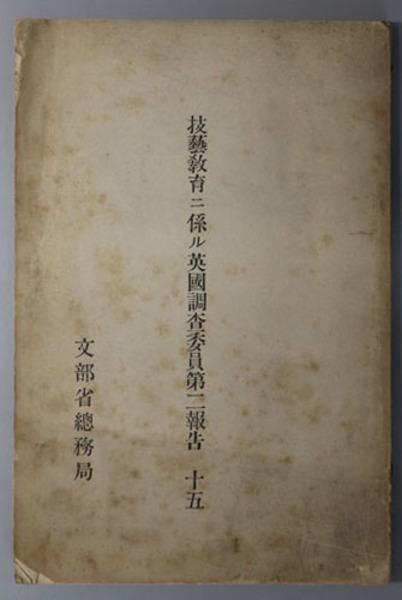 技藝敎育ニ係ル英國調査委員第二報告 十五
文部省總務局